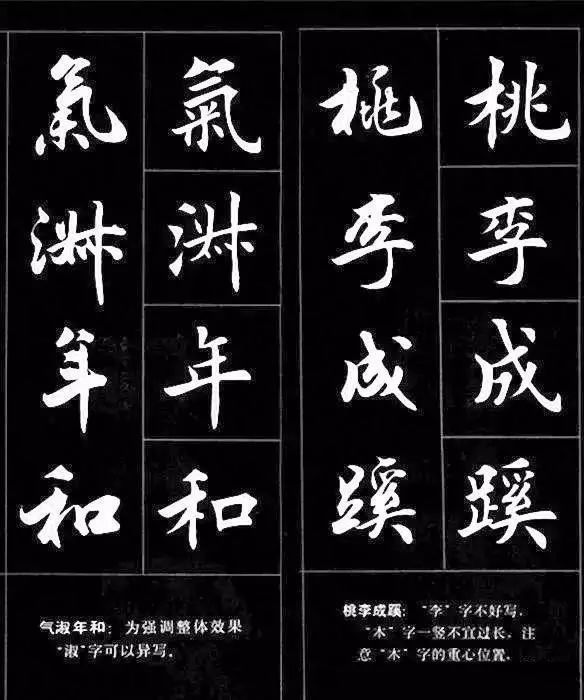 桃李成蹊
桃李成蹊
桃李成蹊：“李”字不好写，
“木”字一竖不宜过长，注
意“木”字的重心位置。
氣淑年和
氣淑年和
气淑年和：为强调整体效果
“淑”字可以异写。